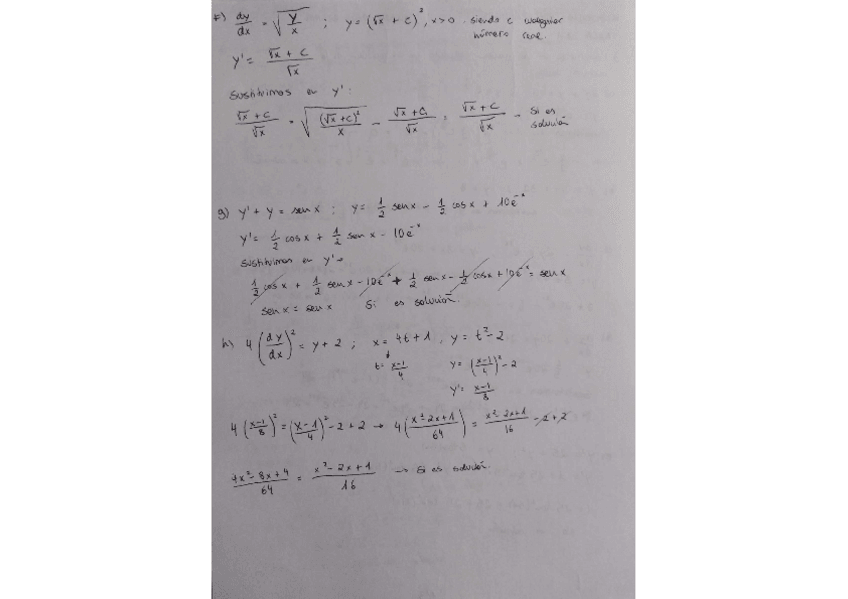 f) dy/dx = √(y/x) ; y = (√x + c)², x>0. siendo c cualquier
número real.
y' = (√x + c)/√x
Sustituimos en y':
(√x + c)/√x = √((√x + c)²/x) → (√x + c)/√x = (√x + c)/√x → Si es
solución
g) y' + y = sen x ; y = 1/2 sen x - 1/2 cos x + 10e⁻ˣ
y' = 1/2 cos x + 1/2 sen x - 10e⁻ˣ
Sustituimos en y' =
1/2 cos x + 1/2 sen x - 10e⁻ˣ + 1/2 sen x - 1/2 cos x + 10e⁻ˣ = sen x
sen x = sen x Si es solución.
h) 4(dy/dx)² = y + 2 ; x = 4t + 1 , y = t² - 2
t = (x-1)/4 y = ((x-1)/4)² - 2
y' = (x-1)/8
4((x-1)/8)² = ((x-1)/4)² - 2 + 2 → 4((x² - 2x + 1)/64) = (x² - 2x + 1)/16 - 2 + 2
(4x² - 8x + 4)/64 = (x² - 2x + 1)/16 → Si es solución.